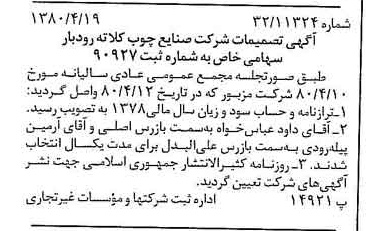 شماره ۳۲/۱۱۳۲۴ ۱۳۸۰/۴/۱۹
آگهی تصمیمات شرکت صنایع چوب کلاته رودبار
سهامی خاص به شماره ثبت ۹۰۹۲۷
طبق صورتجلسه مجمع عمومی عادی سالیانه مورخ
۸۰/۴/۱۰ شرکت مزبور که در تاریخ ۸۰/۴/۱۲ واصل گردید:
۱ـ ترازنامه و حساب سود و زیان سال مالی ۱۳۷۸ به تصویب رسید.
۲ـ آقای داود عباس‌خواه به‌سمت بازرس اصلی و آقای آرمین
پیله‌رودی به‌سمت بازرس علی‌البدل برای مدت یکسال انتخاب
شدند. ۳ـ روزنامه کثیرالانتشار جمهوری اسلامی جهت نشر
آگهی‌های شرکت تعیین گردید.
پ ۱۴۹۲۱ اداره ثبت شرکتها و مؤسسات غیرتجاری